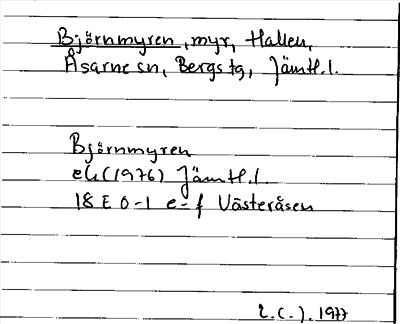 Björnmyren, myr, Hallen,
Åsarne sn, Bergs tg, Jämtl.l.
Björnmyren
ek (1976) Jämtl.l.
18 E 0-1 e-f Västeråsen
1977